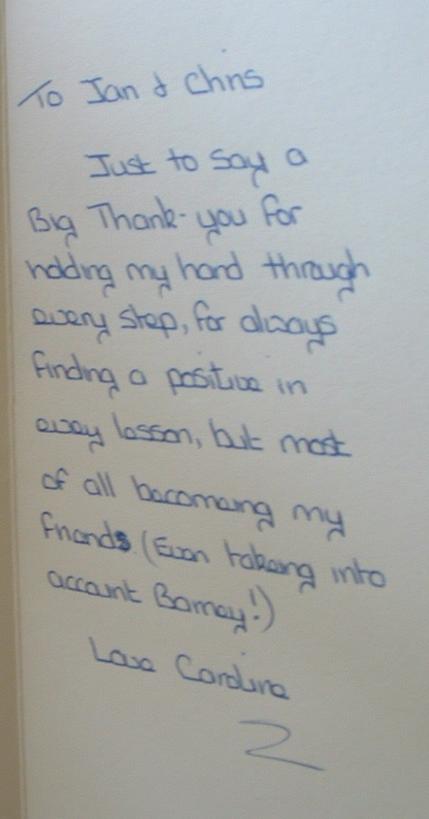 To Jan & Chris
Just to say a
Big Thank-you for
holding my hand through
every step, for always
finding a positive in
every lesson, but most
of all becomeing my
friends. (Even takeing into
account Barney!)
Love Caroline